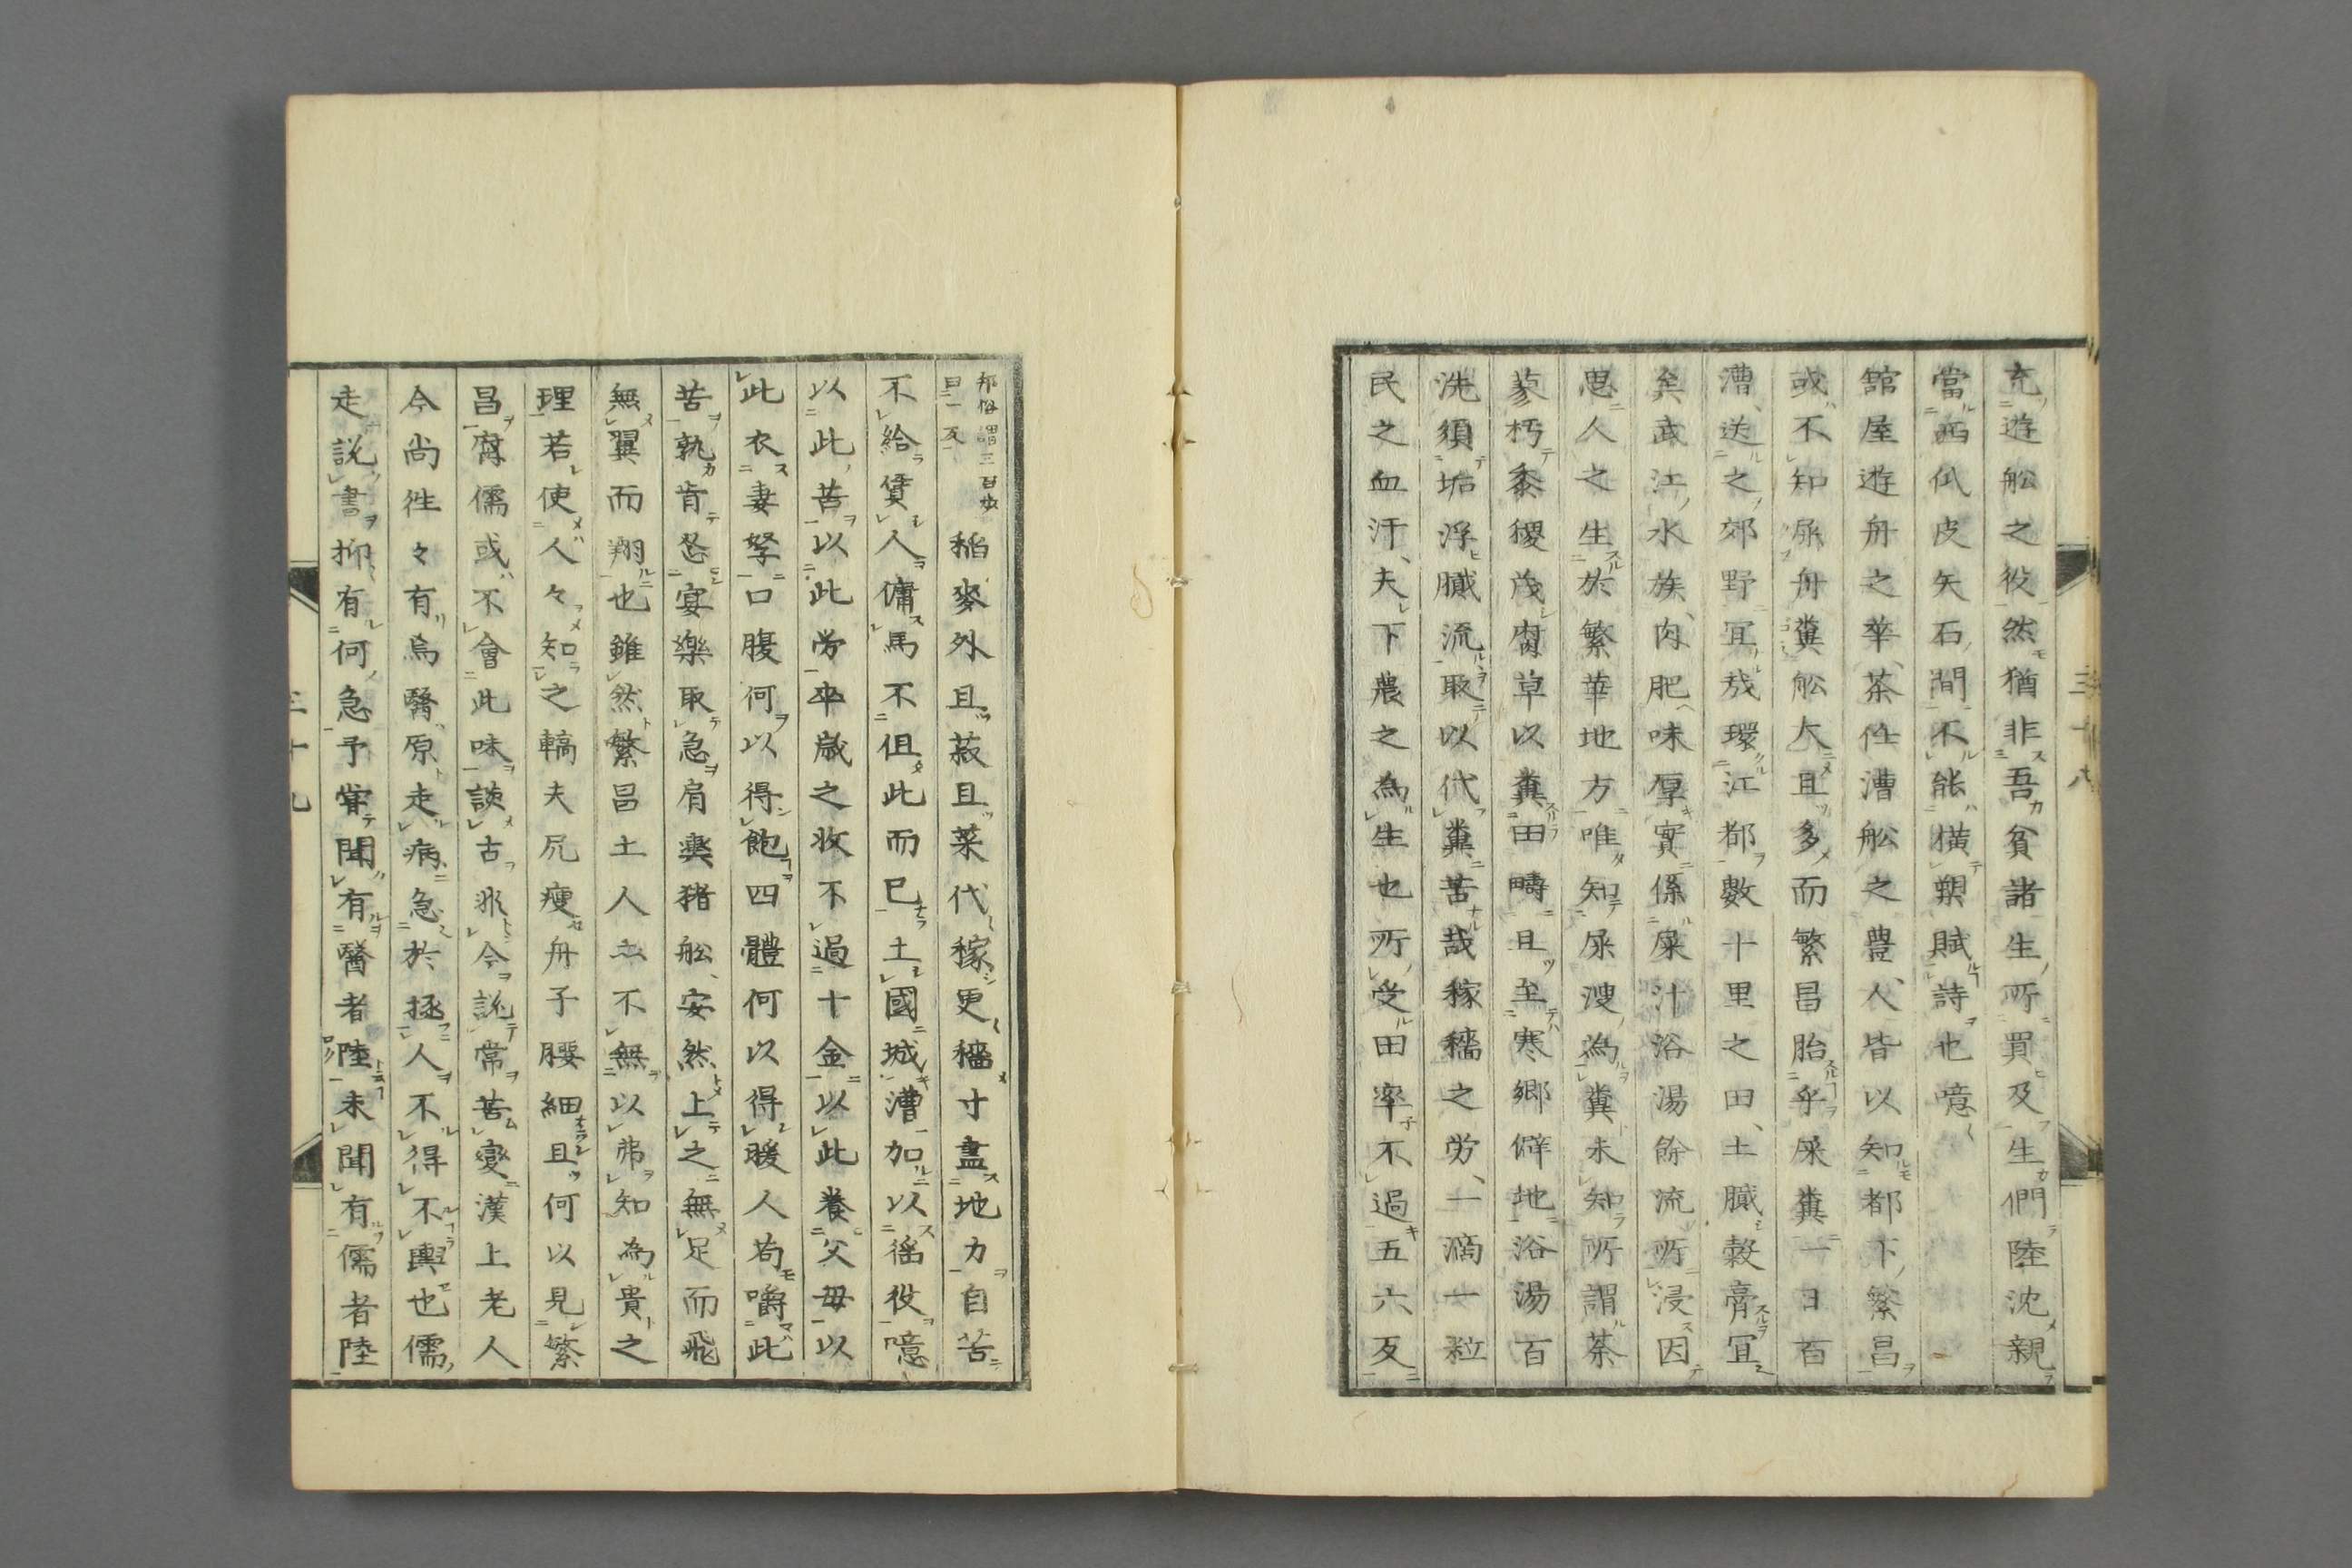 充遊舩之役然猶非吾貧諸生所買及生們陸沈親
當西氐皮矢石間不能横槊賦詩也噫
舘屋遊舟之華茶性漕舩之豊人皆以知都下繁昌
或不知𡱁舟糞舩大且多而繁昌胎乎屎糞一日百
漕送之郊野冝哉環江都數十里之田土膩穀膏冝
矣武江水族肉肥味厚實係屎汁浴湯餘流所浸因
思人之生於繁華地方唯知尿溲為糞未知所謂荼
蓼朽黍稷茂腐草以糞田疇且至寒郷僻地浴湯百
洗須垢浮膩流取以代糞苦哉稼穡之労一滴一粒
民之血汗夫下農之為生也所受田率不過五六反
邦俗謂三百歩
曰一反
稲麥外且菽且菜代稼更穡寸盡地力自苦
不給賃人傭馬不但此而已土國城漕加以徭役噫
以此苦以此労卒歳之收不過十金以此養父母以
此衣妻孥口腹何以得飽四體何以得暖人苟嚼此
苦孰肯忍宴樂取急肩輿猪舩安然上之無足而飛
無翼而翔也雖然繁昌土人亦不無以弗知為貴之
理若使人々知之轎夫尻瘦舟子腰細且何以見繁
昌腐儒或不會此味談古非今説常苦變漢上老人
今尚徃々有焉醫原走病急於拯人不得不輿也儒
走説書抑有何急予甞聞有醫者陸未聞有儒者陸
三十八
三十九